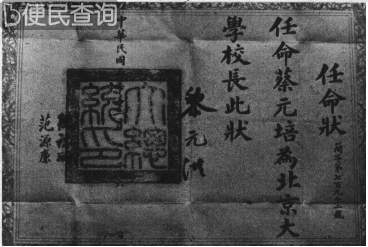 便民查询
任命狀
任命蔡元培為北京大
學校長此狀
黎元洪
大總統印
中華民國
范源廉